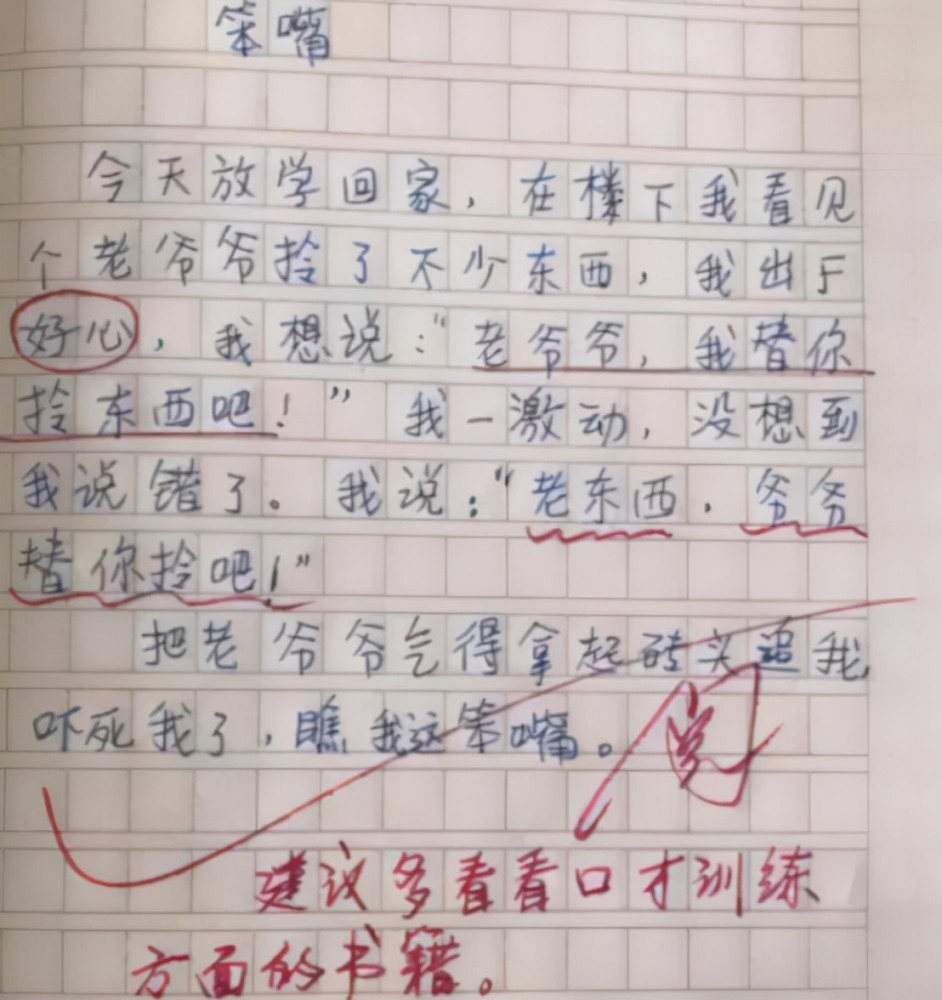 笨嘴
今天放学回家，在楼下我看见
个老爷爷拎了不少东西，我出于
好心，我想说：“老爷爷，我替你
拎东西吧！”我一激动，没想到
我说错了。我说：“老东西，爷爷
替你拎吧！”
把老爷爷气得拿起砖头追我，
吓死我了，瞧我这笨嘴。
阅
建议多看看口才训练
方面的书籍。